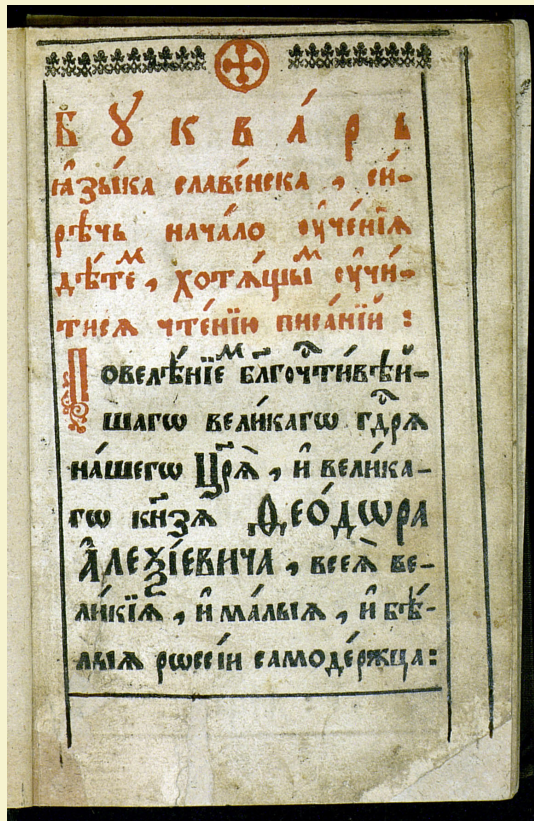 Бꙋква́рь
ꙗ҆зы́ка славе́нска , си́-
рѣчь нача́ло ᲂу҆че́нїѧ
дѣ́теⷨ , хотѧ́щыⷨ ᲂу҆чи́-
тисѧ чте́нїю писа́нїй :
Повелѣ́нїеⷨ бл҃гочⷭ҇ти́вѣй-
шагѡ вели́кагѡ гдⷭ҇рѧ
на́шегѡ Цр҃ѧ̀ , и҆ вели́ка-
гѡ кн҃зѧ Ѳео́дѡра
А҆леѯі́евича , всеѧ̀ ве-
ли́кїѧ , и҆ ма́лыѧ , и҆ бѣ́-
лыѧ рѡссі́и самоде́ржца :